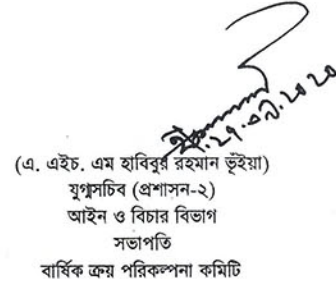 ২৭.০৭.২০২০
(এ. এইচ. এম হাবিবুর রহমান ভূঁইয়া)
যুগ্মসচিব (প্রশাসন-২)
আইন ও বিচার বিভাগ
সভাপতি
বার্ষিক ক্রয় পরিকল্পনা কমিটি